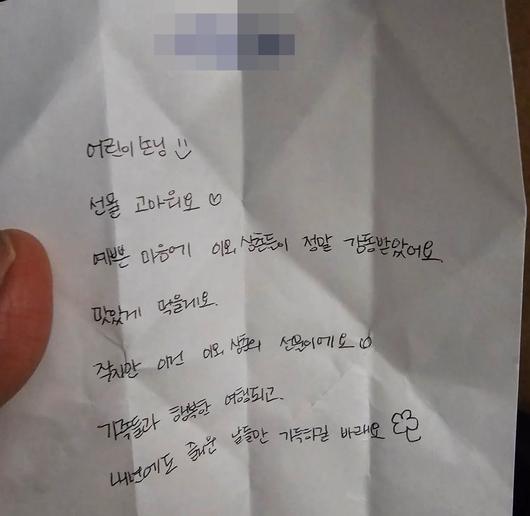 어린이손님
선물 고마워요
예쁜 마음에 이모, 삼촌들이 정말 감동받았어요.
맛있게 먹을게요.
작지만 이건 이모, 삼촌의 선물이에요
가족들과 행복한 여행되고.
내년에도 즐거운 날들만 가득하길 바래요